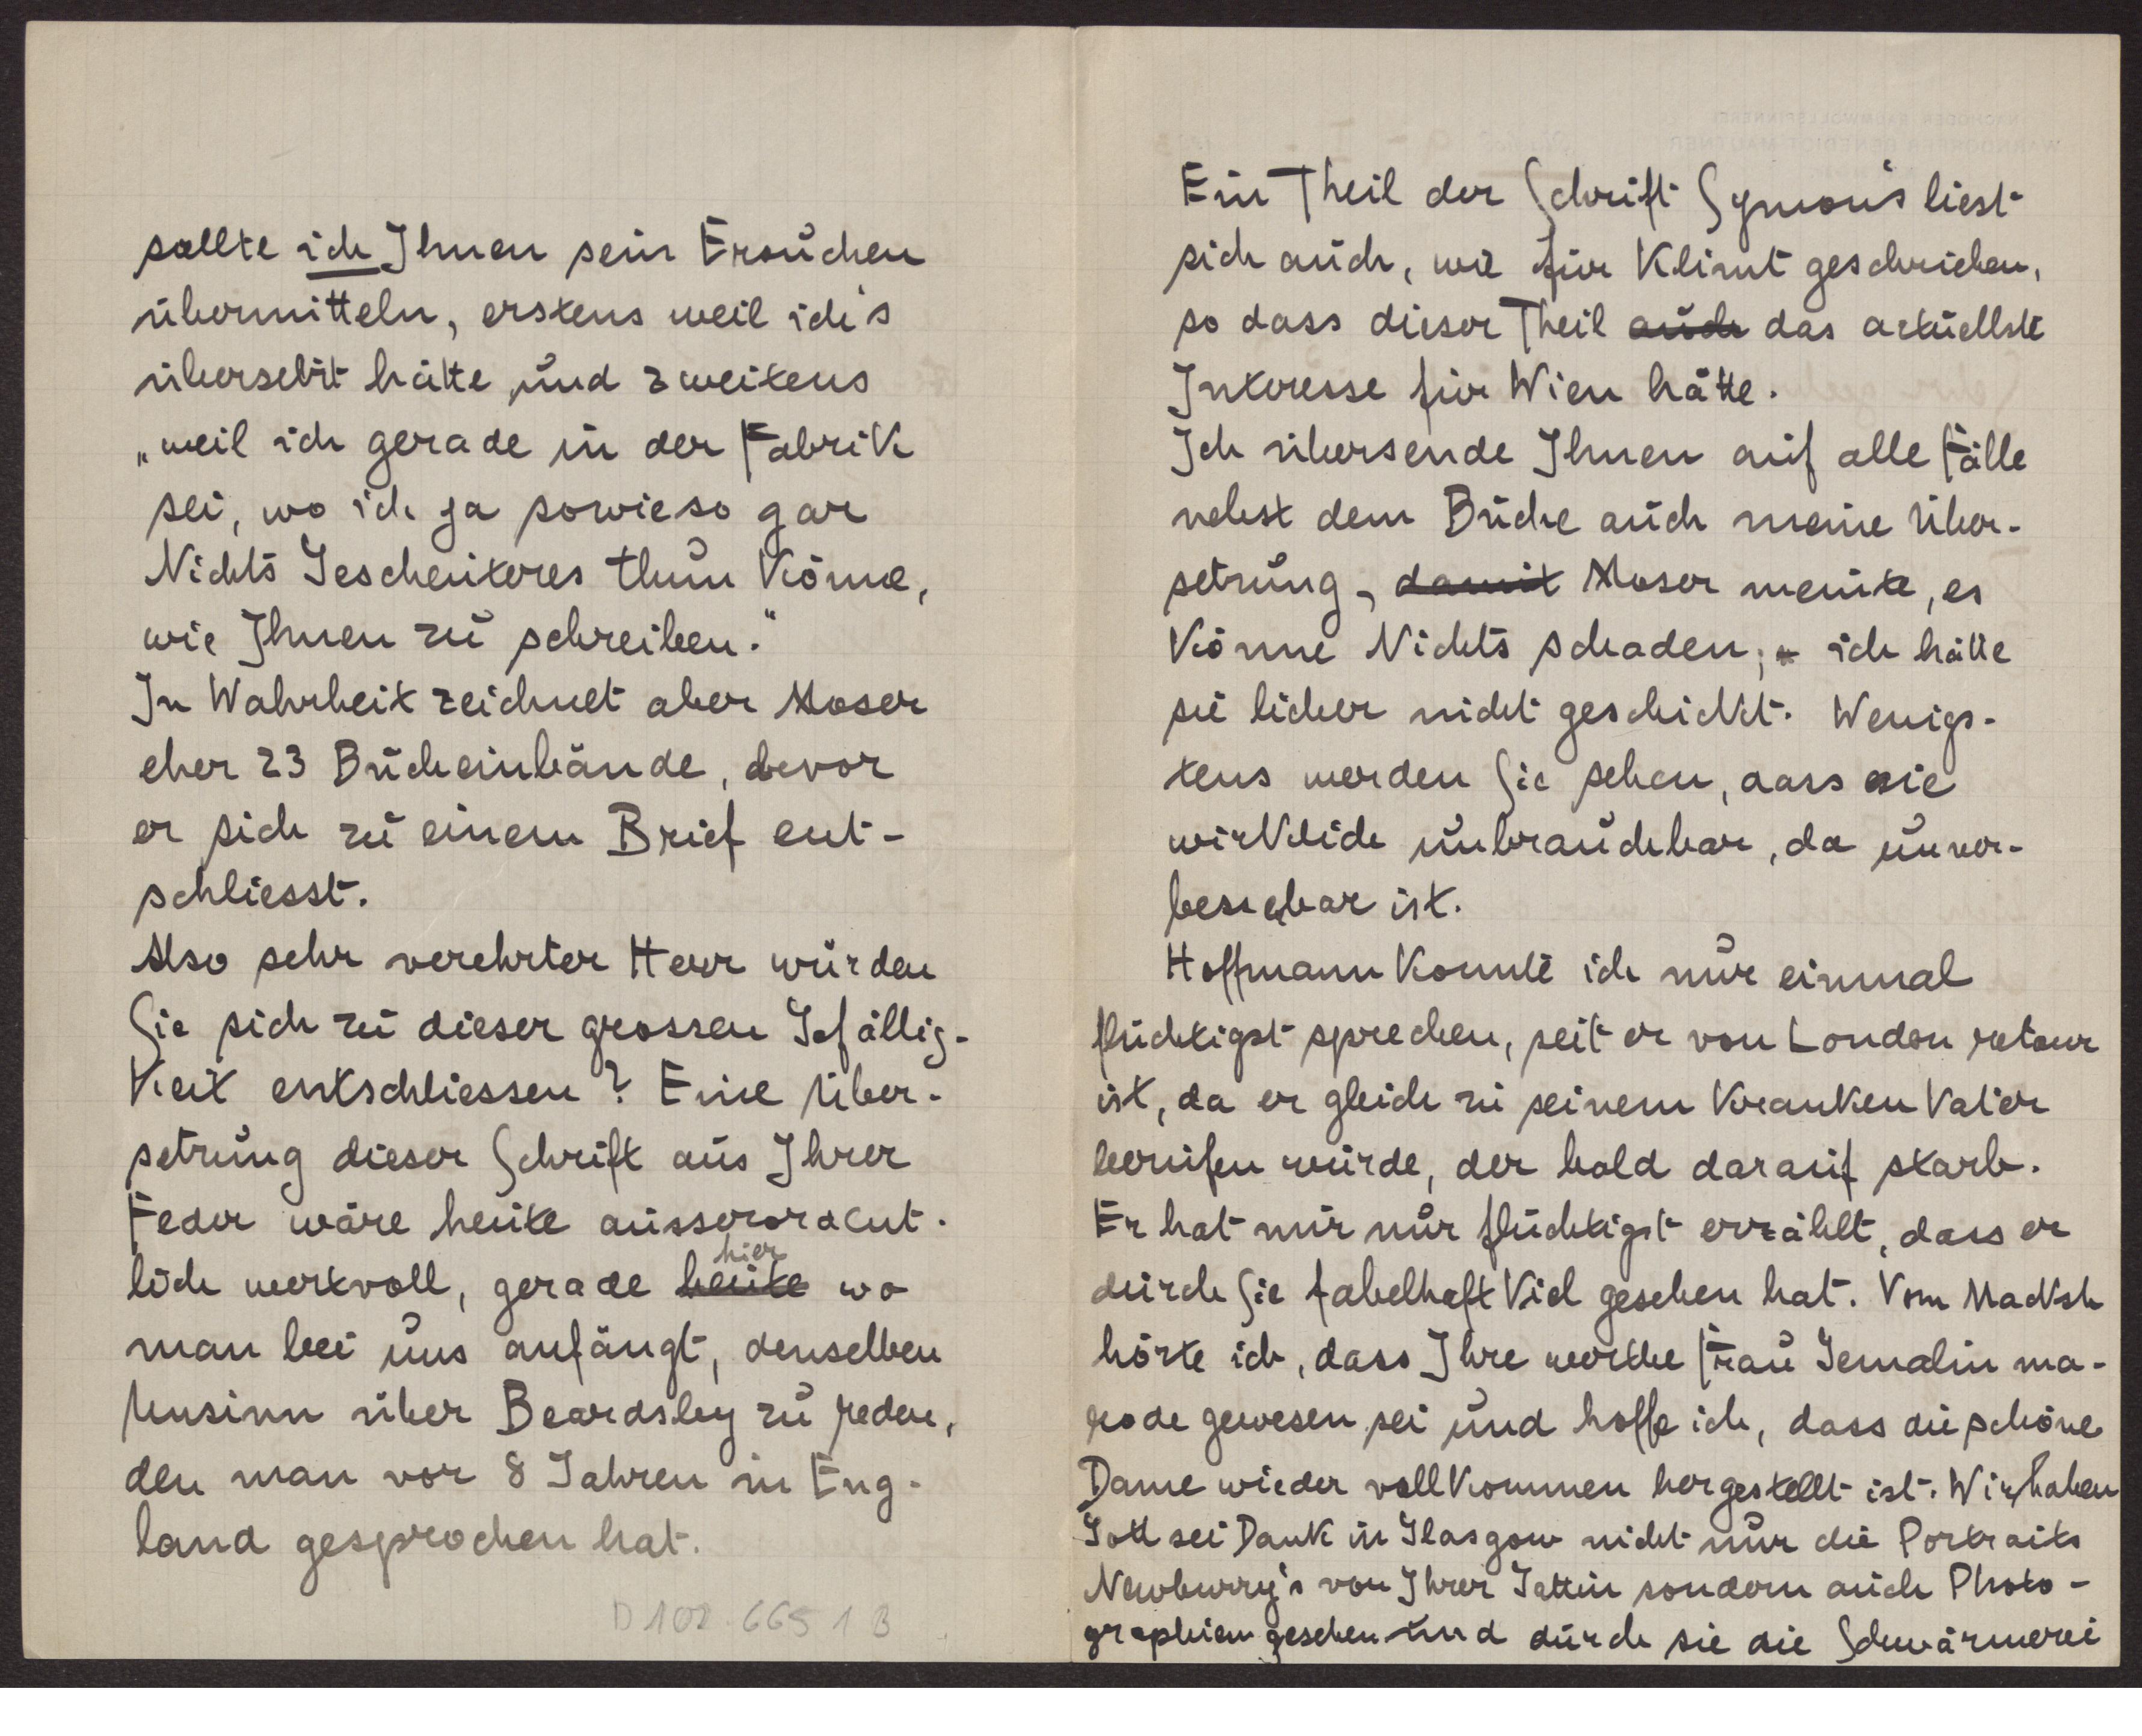 sollte ich Ihnen sein Ersuchen
übermitteln, erstens weil ich's
übersetzt hätte und zweitens
„weil ich gerade in der Fabrik
sei, wo ich ja sowieso gar
Nichts Gescheuteres thun könne,
wie Ihnen zu schreiben."
In Wahrheit zeichnet aber Moser
eher 23 Bucheinbände, bevor
er sich zu einem Brief ent-
schliesst.
Also sehr verehrter Herr würden
Sie sich zu dieser grossen Gefällig-
keit entschliessen? Eine Über-
setzung dieser Schrift aus Ihrer
Feder wäre heute ausserordent-
lich wertvoll, gerade heute hier wo
man bei uns anfängt, denselben
Unsinn über Beardsley zu reden,
den man vor 8 Jahren in Eng-
land gesprochen hat.
D 102.665 1 B
Ein Theil der Schrift Symon's liest
sich auch, wie für Klimt geschrieben,
so dass dieser Theil auch das actuellste
Interesse für Wien hätte.
Ich übersende Ihnen auf alle Fälle
nebst dem Buche auch meine Über-
setzung, damit Moser meinte, es
könne Nichts schaden; ich hätte
sie lieber nicht geschickt. Wenigs-
tens werden Sie sehen, dass sie
wirklich unbrauchbar, da unver-
besserbar ist.
Hoffmann konnte ich nur einmal
flüchtigst sprechen, seit er von London retour
ist, da er gleich zu seinem kranken Vater
berufen wurde, der bald darauf starb.
Er hat mir nur flüchtigst erzählt, dass er
durch Sie fabelhaft Viel gesehen hat. Vom Macksh
hörte ich, dass Ihre werthe Frau Gemalin ma-
rode gewesen sei und hoffe ich, dass die schöne
Dame wieder vollkommen hergestellt ist. Wir haben
Gott sei Dank in Glasgow nicht nur die Portraits
Newburry's von Ihrer Gattin sondern auch Photo-
graphien gesehen und durch sie die Schwärmerei